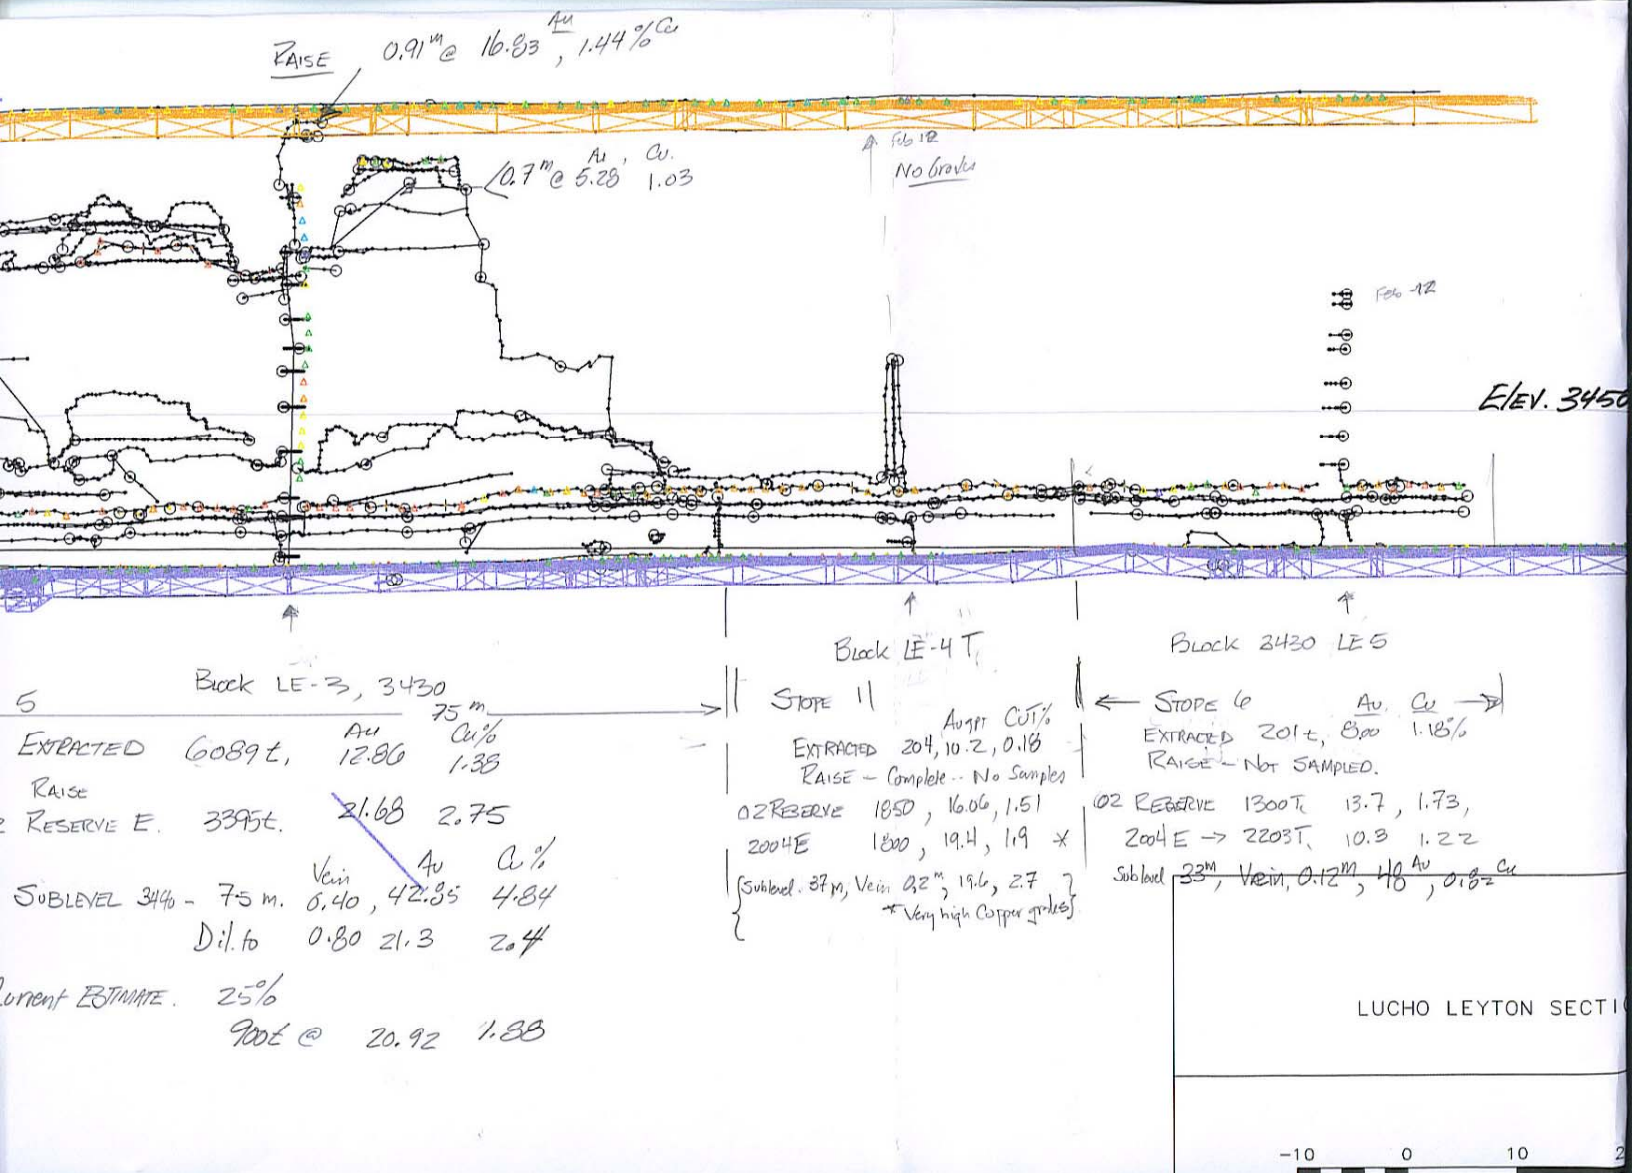 Au
RAISE 0.91 m @ 16.83 , 1.44 % Cu
Feb 12
No Grades
Au , Cu.
0.7 m @ 5.28 1.03
Feb -12
ELEV. 3450
Block LE-3, 3430
5
75 m
Au Cu%
EXTRACTED 6089t, 12.86 1.38
RAISE
RESERVE E. 3395t. 21.68 2.75
Vein Au Cu %
SUBLEVEL 3440 - 75 m. 0.40 , 42.85 4.84
Dil. to 0.80 21.3 2.4
Current ESTIMATE. 25%
900t @ 20.92 1.88
Block LE-4 T,
STOPE 11
Au gpt CUT%
EXTRACTED 204, 10.2, 0.18
RAISE - Complete -- No Samples
02 RESERVE 1850 , 16.06, 1.51
2004E 1800 , 19.4, 1.9 *
{Sublevel. 37 m, Vein 0.2 m, 19.6, 2.7 }
* Very high Copper grades}
Block 3430 LE5
← STOPE 6 Au. Cu →
EXTRACTED 201 t, 8.00 1.18%
RAISE - NOT SAMPLED.
02 RESERVE 1300T, 13.7 , 1.73,
2004 E → 2203T, 10.3 1.22
Sublevel 33 m, Vein, 0.12 m, 48 Au, 0.82 Cu
LUCHO LEYTON SECTI
-10 0 10 2